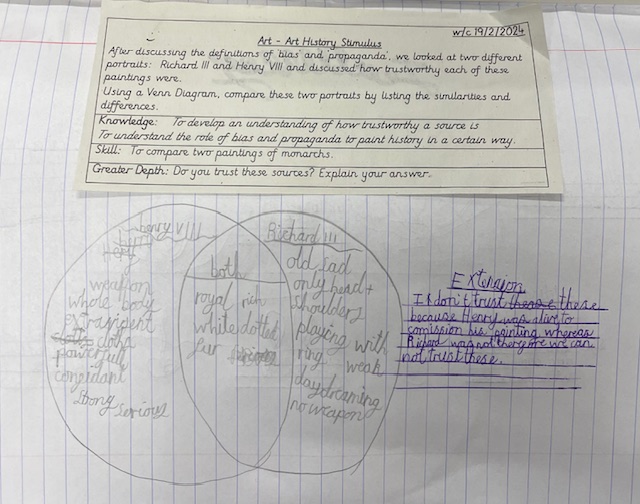 w/c 19/2/2024
Art - Art History Stimulus
After discussing the definitions of 'bias' and 'propaganda', we looked at two different
portraits: Richard III and Henry VIII and discussed how trustworthy each of these
paintings were.
Using a Venn Diagram, compare these two portraits by listing the similarities and
differences.
Knowledge: To develop an understanding of how trustworthy a source is
To understand the role of bias and propaganda to paint history in a certain way.
Skill: To compare two paintings of monarchs.
Greater Depth: Do you trust these sources? Explain your answer.
henry VIII
weapon
whole body
powerfull
strong serious
both
royal rich
white dotted
fur
Richard III
old sad
only head +
shoulders
playing with
ring weak
daydreaming
no weapon
Extension
I don't trust these these
because Henry was alive to
comission his painting whereas
Richard was not therefore we can
not trust these.